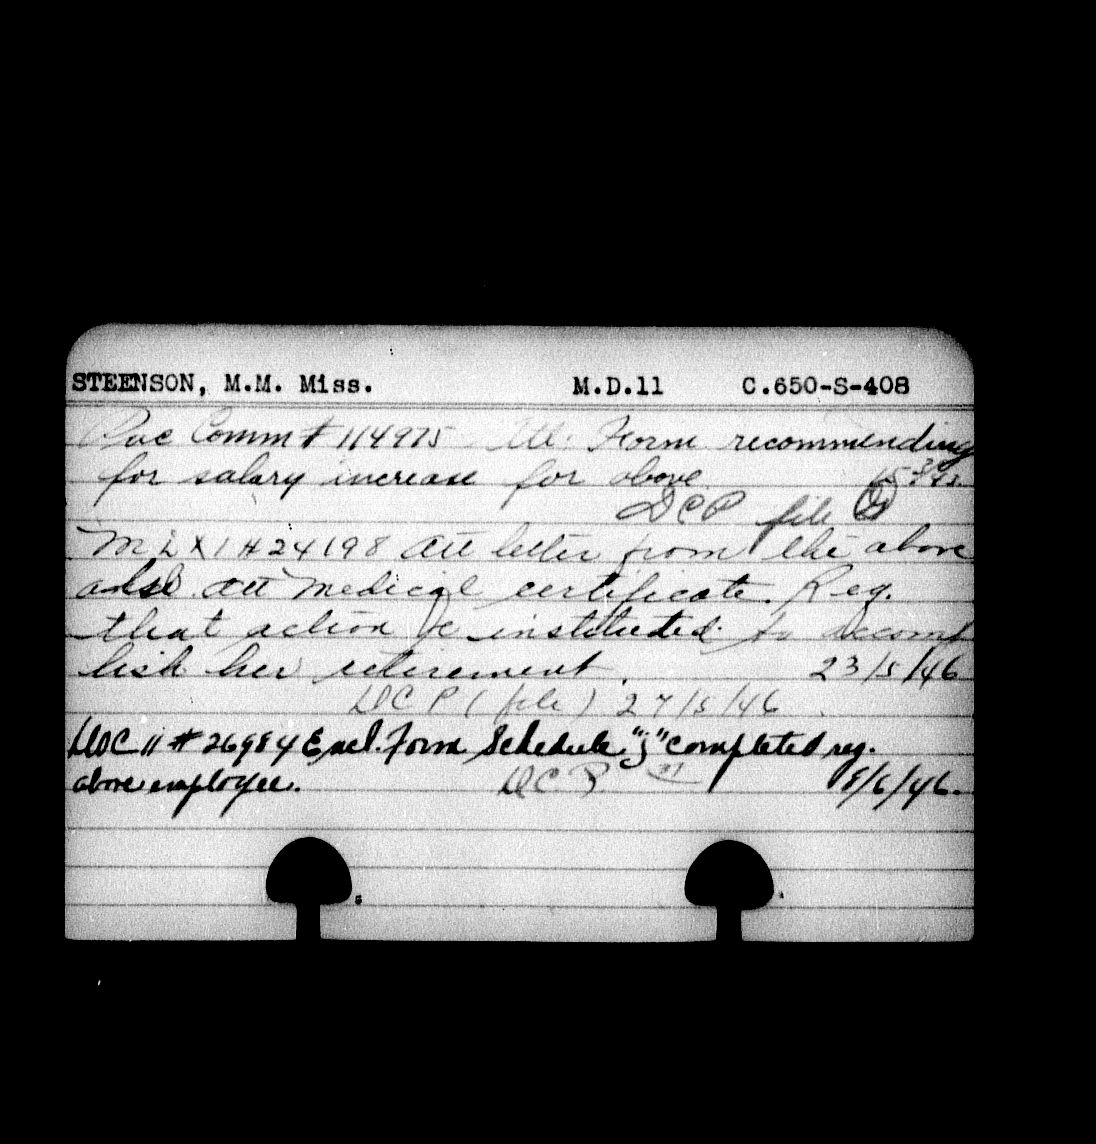 STEENSON, M.M. Miss. M.D.11 C.650-S-408
Pac Comm # 114975 Att: Form recommending
for salary increase for above.
DCP file
#24198 Att letter from the above
also att medical certificate. Req.
that action be instituted to accomp
lish her retirement. 23/5/46
DCP (file) 27/5/46
DOC 11 # 26984 Encl. Form Schedule "J" completed reg.
above employee. DCP 8/6/46.